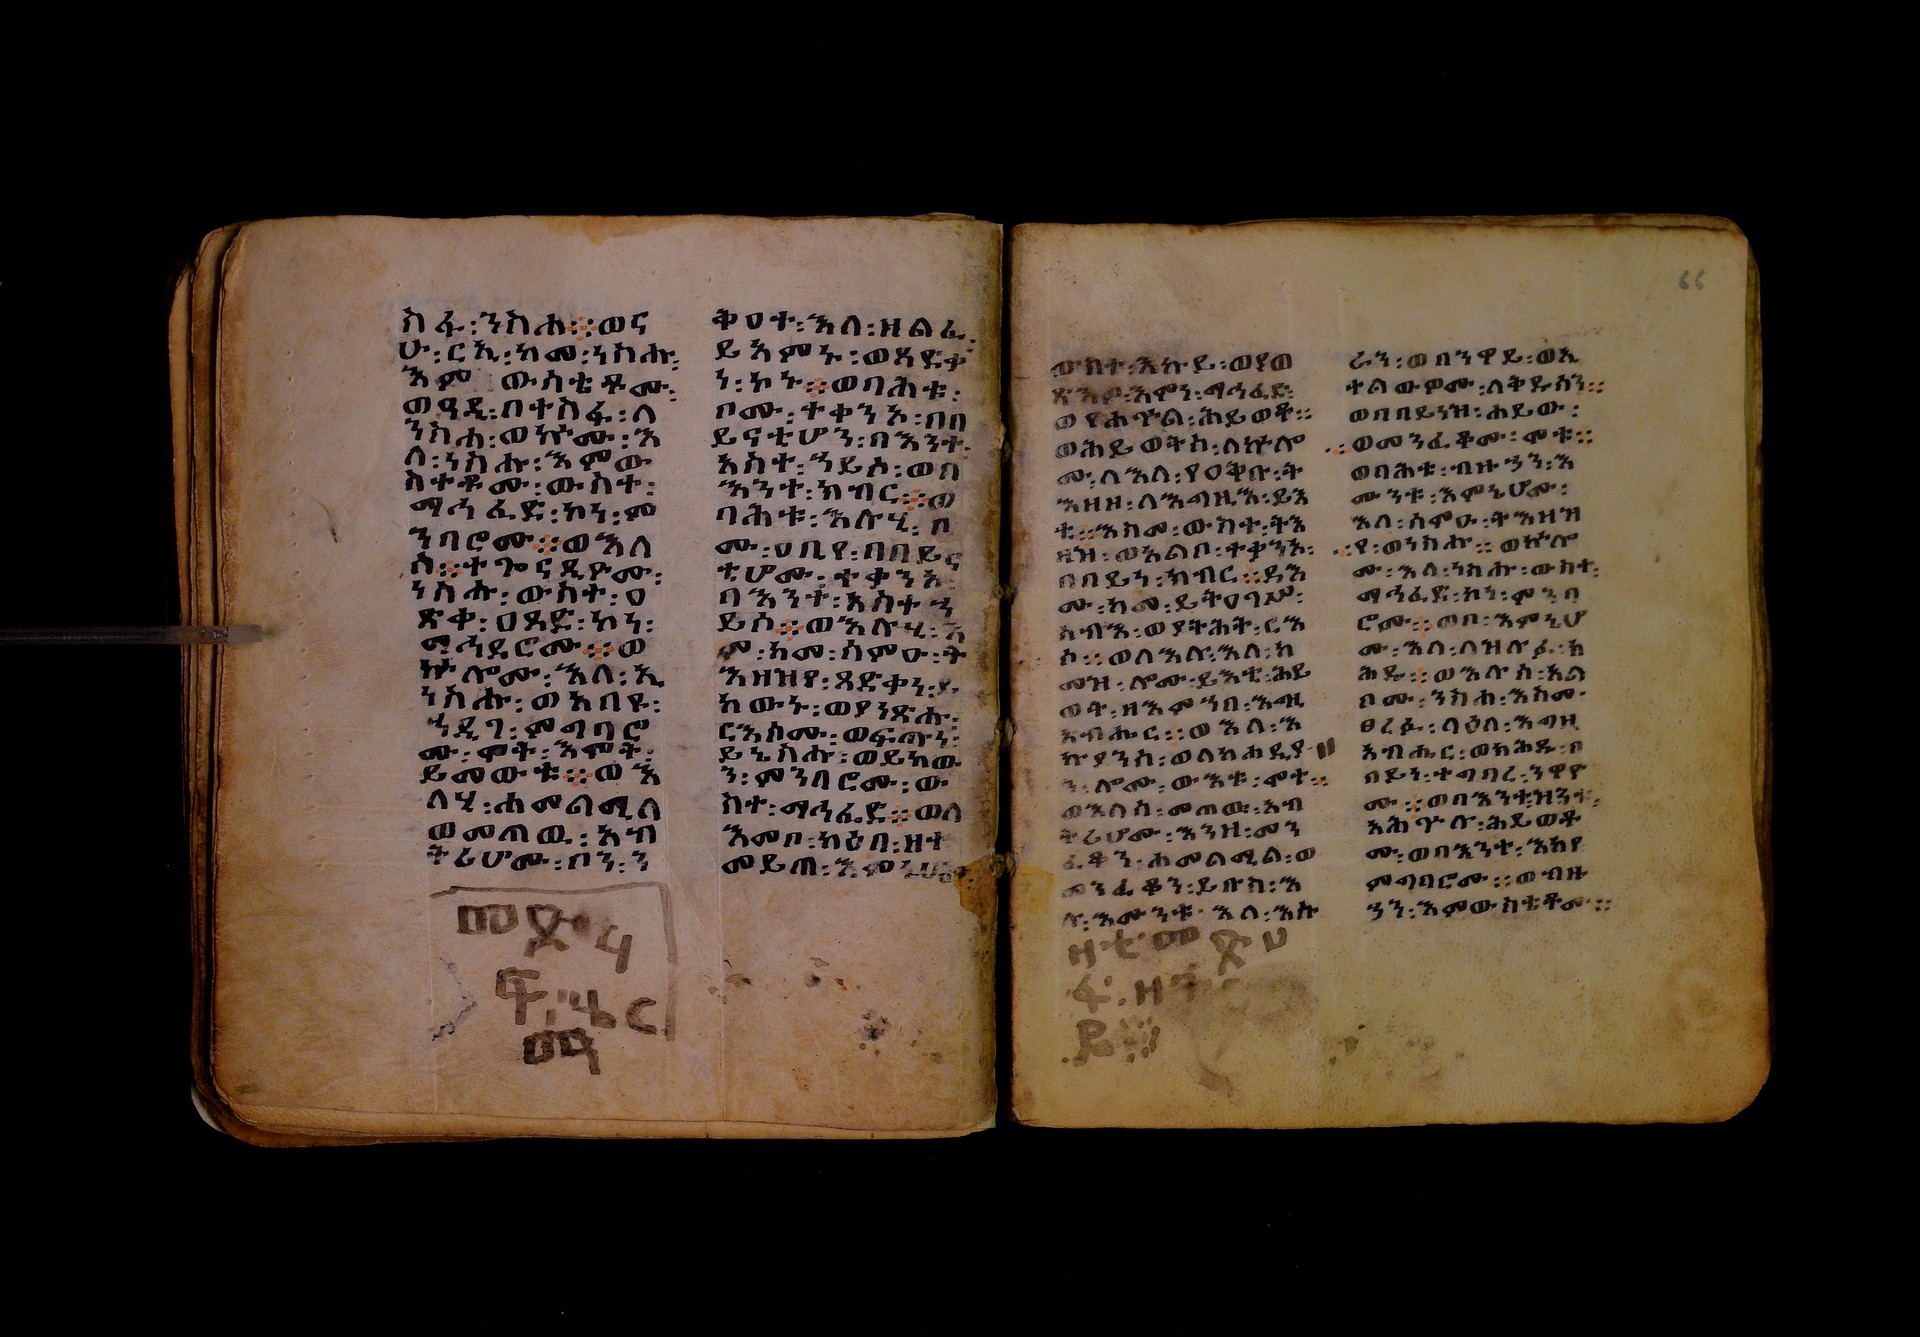 ስፋ፡ንስሐ፨ወና
ሁ፡ርኢ፡ከመ፡ነስሑ፡
እም ውስቴቶሙ፡
ወዓዲ፡በተስፋ፡ለ
ንስሐ፡ወኵሙ፡እ
ለ፡ነስሑ፡እምው
ስተቶሙ፡ውስተ፡
ማኅፈድ፡ኮነ፡ም
ንባሮሙ፨ወእለ
ሰ፨ተጐናዲዮሙ፡
ነስሑ፡ውስተ፡ዐ
ጽቀ፡ዐጸድ፡ኮነ፡
ማኅደሮሙ፨ወ
ኵሎሙ፡እለ፡ኢ
ነስሑ፡ወአበዩ፡
ኀዲገ፡ምግባሮ
ሙ፡ሞት፡እሞት፡
ይመውቱ፨ወእ
ለሂ፡ሐመልሚለ
ወመጠዉ፡አብ
ትሪሆሙ፡በነ፡ን
ቅዐተ፡እለ፡ዘልፈ፡
ይአምኑ፡ወጻድቃ
ነ፡ኮኑ፨ወባሕቱ፡
ቦሙ፡ተቃንኦ፡በበ
ይናቲሆን፡በእንተ፡
እስተ፡ኀይሶ፡ወበ
እንተ፡ክብር፨ወ
ባሕቱ፡እሉሂ፡በ
ሙ፡ዐቢየ፡በበይና
ቲሆሙ፡ተቃንእ፡
በእንተ፡አስተኀ
ይሶ፨ወእሉሂ፡እ
ም፡ከመ፡ሰምዑ፡ት
እዘዝየ፡ጻድቃነ፡ይ
ከውኑ፡ወያነጽሑ፡
ርእሰሙ፡ወፍጡነ፡
ይኔስሑ፡ወይከው
ን፡ምንባሮሙ፡ው
ስተ፡ማኅፈድ፨ወለ
እመቦ፡ክዕበ፡ዘተ
መይጠ፡እምኔሆሙ
መጽ ሃ
ፍ፡ሄር
መፃ
66
ውስተ፡እኩይ፡ወያወ
ጽእዎ፡እሞነ፡ማኅፈድ፡
ወያሐጕል፡ሕይወቶ፨
ወሕይወትሰ፡ለኵሎ
ሙ፡ለእለ፡የዐቅቡ፡ት
እዘዘ፡ለእግዚእ፡ይእ
ቲ፨እስመ፡ውስተ፡ትእ
ዘዝ፡ወአልቦ፡ተቃንእ፡
በበይነ፡ክብር፨ዳእ
ሙ፡ከመ፡ይትዐገሥ፡
አብእ፡ወያትሕት፡ርእ
ሶ፨ወለእሉ፡እለ፡ከ
መዝ፡ሎሙ፡ይእቲ፡ሕይ
ወት፡ዘእምኀበ፡እግዚ
አብሔር፨ወእለ፡እ
ኩያንሰ፡ወለክሐዲያ
ን፡ሎሙ፡ውእቱ፡ሞት፨
ወእለሰ፡መጠዉ፡አብ
ትሪሆሙ፡እንዘ፡መን
ፈቆን፡ሐመልሚል፡ወ
መንፈቆን፡ይቡስ፡እ
ሉ፡እሙንቱ፡እለ፡እኩ
ራን፡ወበንዋይ፡ወኢ
ተልውዎሙ፡ለቅዱሳን፨
ወበበይነዝ፡ሐይው፡
ወመንፈቆሙ፡ሞቱ፨
ወባሕቱ፡ብዙኃን፡እ
ሙንቱ፡እምኔሆሙ፡
እለ፡ሰምዑ፡ትእዘዝ
የ፡ወነስሑ፨ወኵሎ
ሙ፡እለ፡ነስሑ፡ውስተ፡
ማኅፈድ፡ኮነ፡ምንባ
ሮሙ፨ወቦ፡እምኔሆ
ሙ፡እለ፡ለዝሉፉ፡ክ
ሕዱ፨ወእሉሰ፡አል
ቦሙ፡ንስሐ፡እስመ፡
ፀረፉ፡ላዕለ፡እግዚ
አብሔር፡ወክሕዱ፡በ
በይነ፡ተግባረ፡ንዋዮ
ሙ፨ወበእንተዝንቱ፡
አሕጐሉ፡ሕይወቶ
ሙ፡ወበእንተ፡እከየ
ምግባሮሙ፨ወብዙ
ኃን፡እምውስቴቶሙ፨
ዛቲ መጽሀ
ፋ፡ዘ